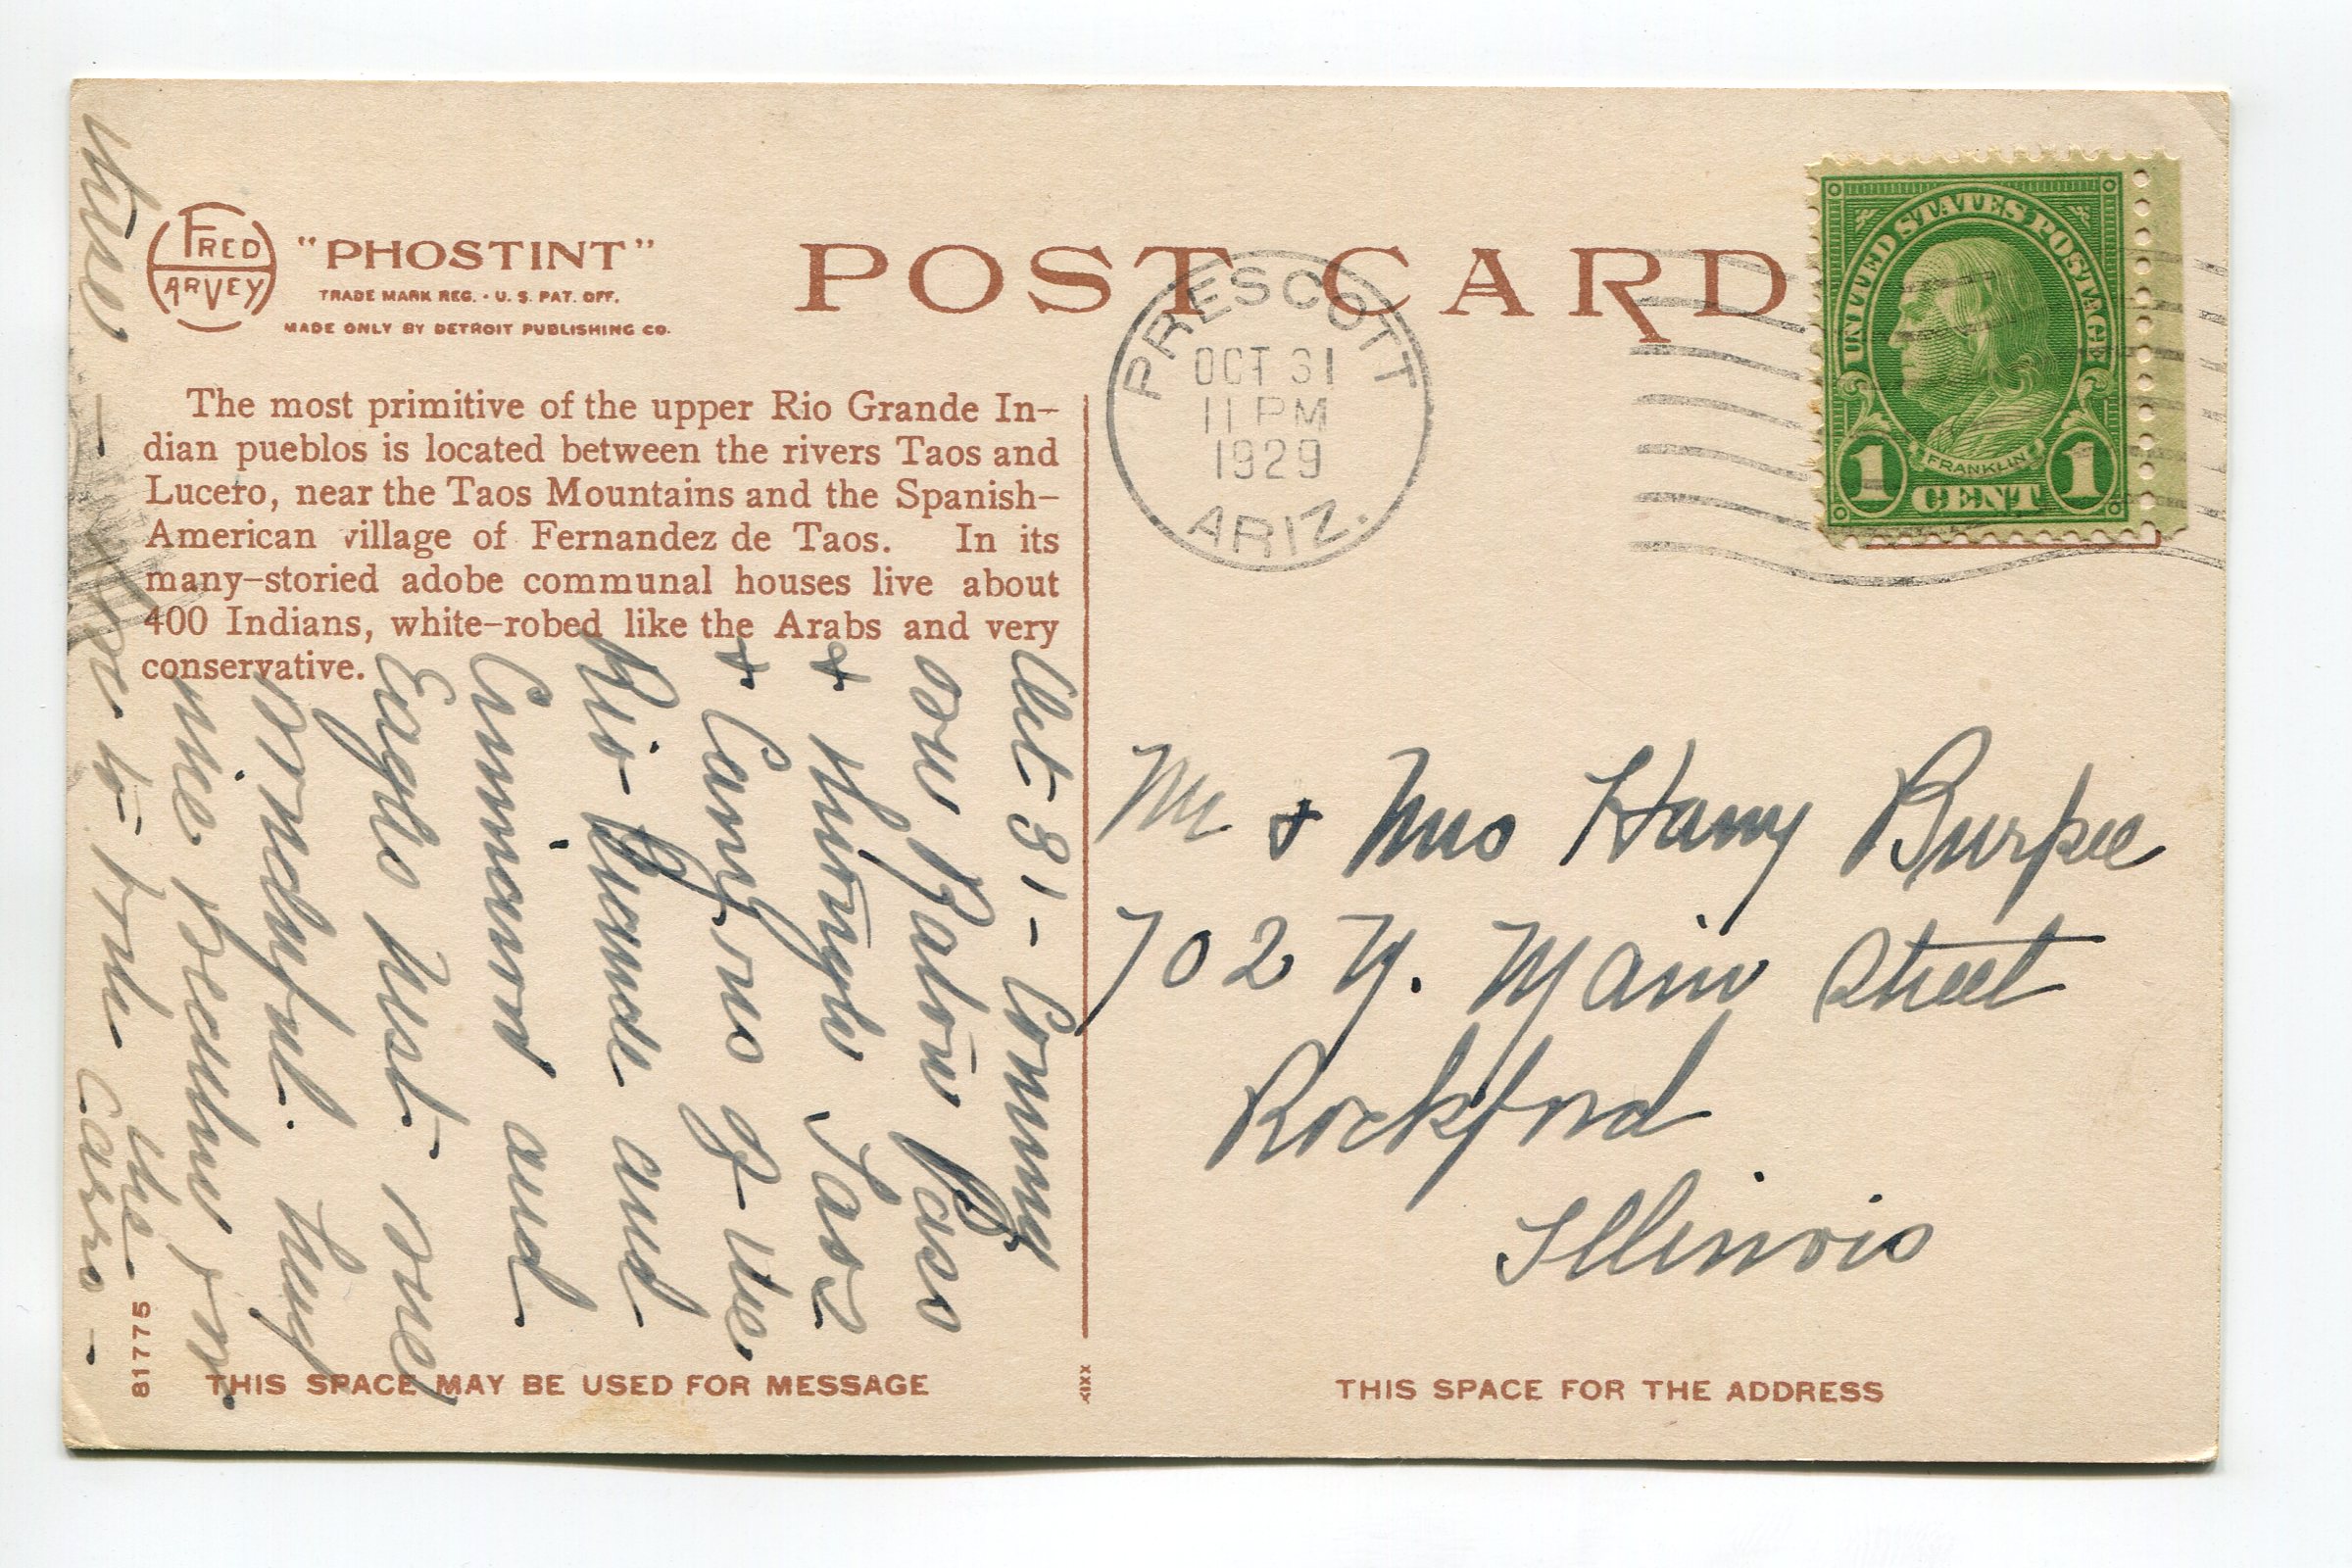 FRED
HARVEY
"PHOSTINT"
TRADE MARK REG. · U. S. PAT. OFF.
MADE ONLY BY DETROIT PUBLISHING CO.
POST CARD
PRESCOTT
OCT 31
11 PM
1929
ARIZ.
UNITED STATES POSTAGE
FRANKLIN
1 CENT 1
The most primitive of the upper Rio Grande In-
dian pueblos is located between the rivers Taos and
Lucero, near the Taos Mountains and the Spanish-
American village of Fernandez de Taos. In its
many-storied adobe communal houses live about
400 Indians, white-robed like the Arabs and very
conservative.
Oct 31 - Coming
our Raton Pass
+ through Taos
+ Canyons of the
Rio Grande and
Cimmaron and
Eagle Nest - were
wonderful. Hung
nice
to the Caves -
Mr + Mrs Harry Burpee
702 N. Main Street
Rockford
Illinois
81775
THIS SPACE MAY BE USED FOR MESSAGE
XXIX
THIS SPACE FOR THE ADDRESS